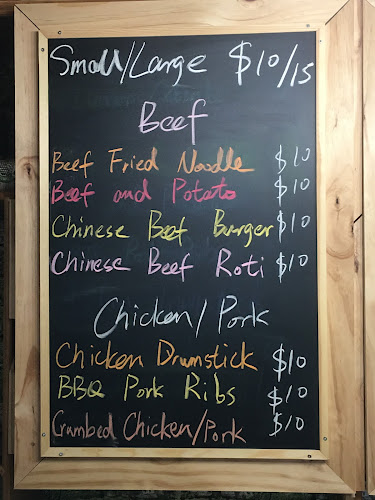 Small/Large $10/15
Beef
Beef Fried Noodle $10
Beef and Potato $10
Chinese Beef Burger $10
Chinese Beef Roti $10
Chicken/Pork
Chicken Drumstick $10
BBQ Pork Ribs $10
Crumbed Chicken/Pork $10